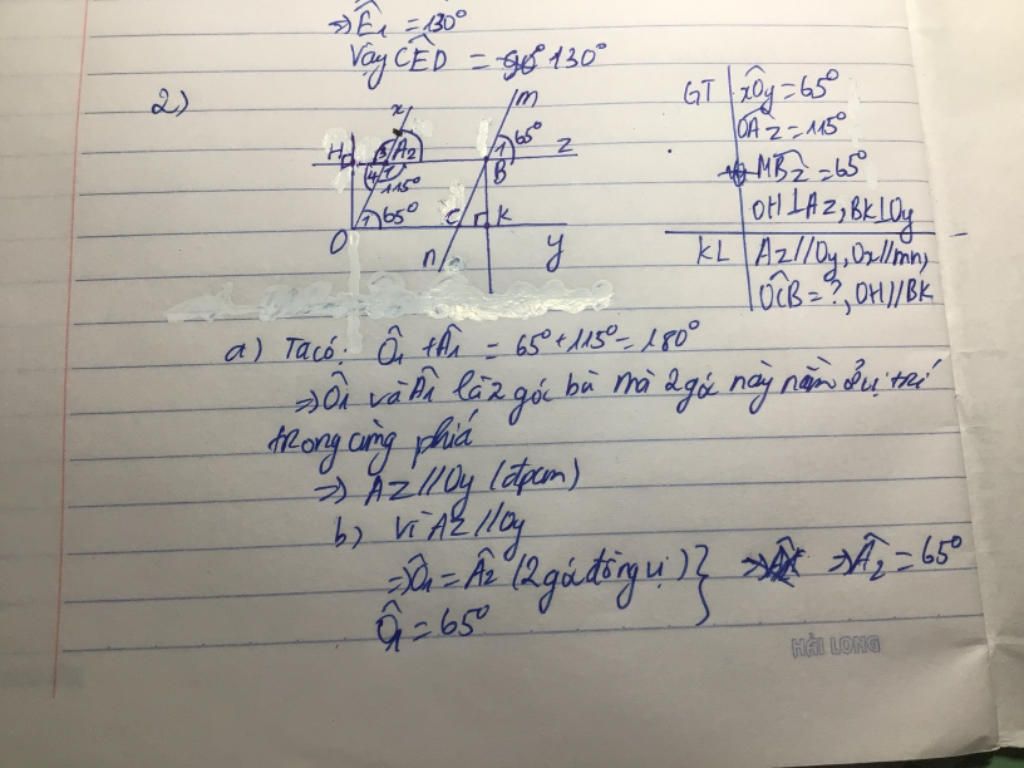 ⇒ Ê₁ = 130°
Vậy CÊD = 130°
2)
x
m
H
3
A₂
1
65°
z
4
1
115°
B
1
65°
C
K
O
n
y
GT
xÔy = 65°
OÂz = 115°
MB̂z = 65°
OH⊥Az, BK⊥Oy
KL
Az//Oy, Ox//mn,
OĈB = ?, OH//BK
a) Ta có: Ô₁ + Â₁ = 65° + 115° = 180°
⇒ Ô₁ và Â₁ là 2 góc bù mà 2 góc này nằm ở vị trí
trong cùng phía
⇒ Az//Oy (đpcm)
b) Vì Az//Oy
⇒ Ô₁ = Â₂ (2 góc đồng vị) } ⇒ Â₂ = 65°
Ô₁ = 65°
HẢI LONG